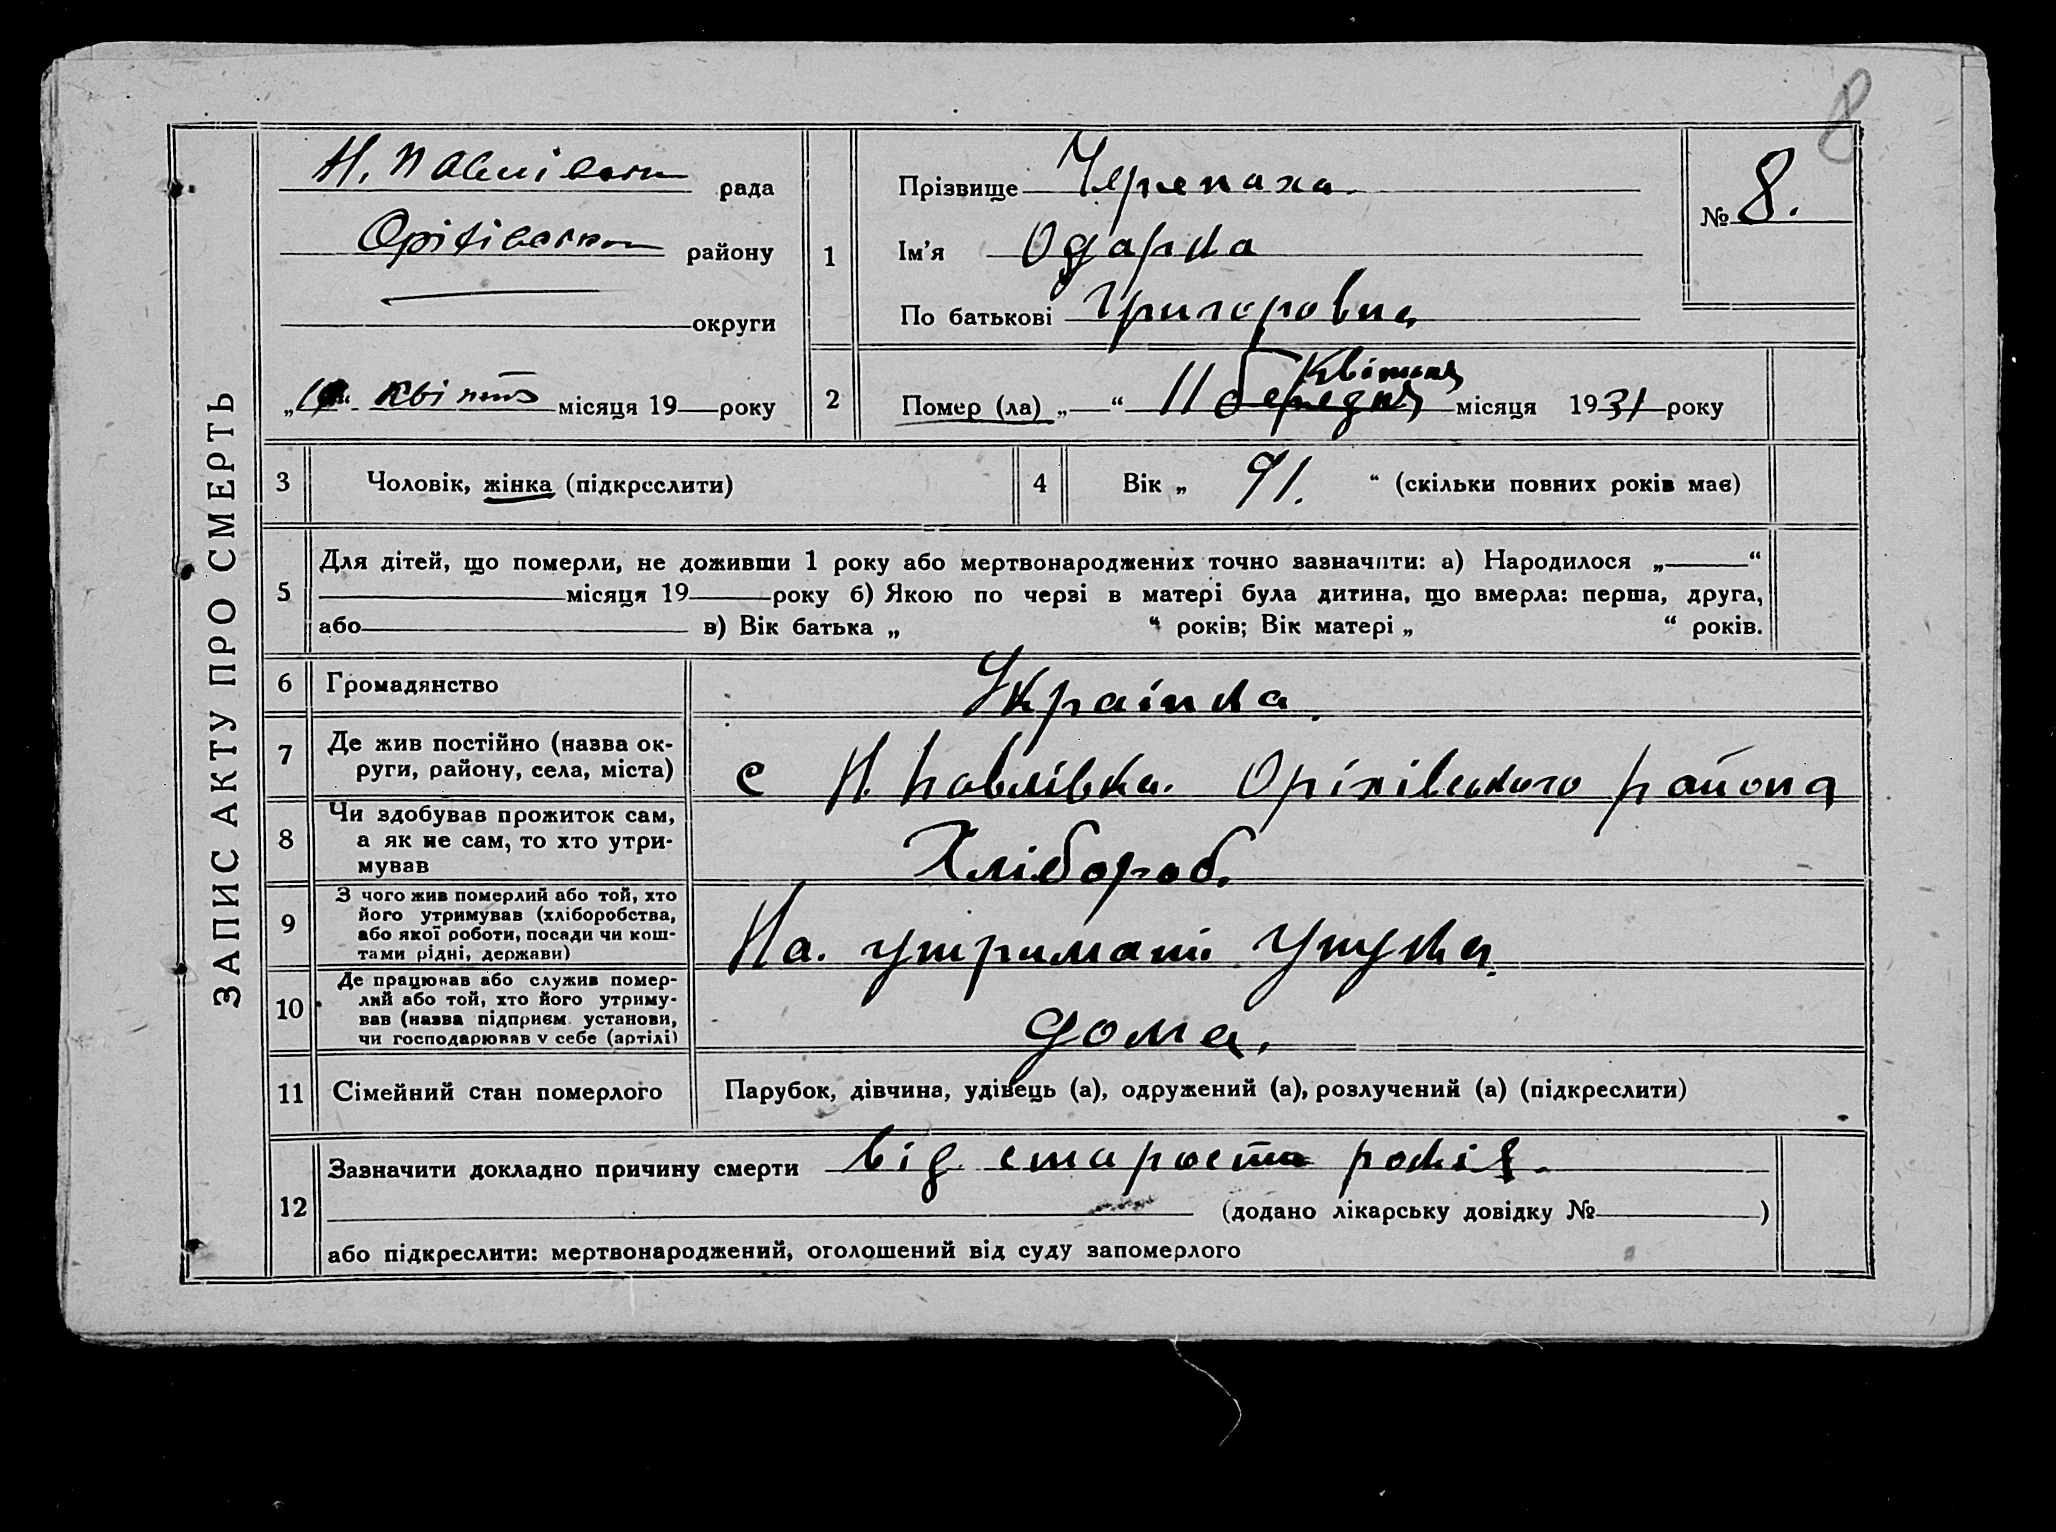 8
ЗАПИС АКТУ ПРО СМЕРТЬ
Н. Павлівська рада
Оріхівського району
округи
„ “ квітня місяця 19 року
1
Прізвище Черепаха.
Ім'я Одарка
По батькові Григоровна
№ 8.
2
Квітня
Помер (ла) „ “ 11 березня місяця 1931 року
3 Чоловік, жінка (підкреслити)
4 Вік „ 91. “ (скільки повних років має)
5
Для дітей, що померли, не доживши 1 року або мертвонароджених точно зазначити: а) Народилося „ “
місяця 19 року б) Якою по черзі в матері була дитина, що вмерла: перша, друга,
або в) Вік батька „ “ років; Вік матері „ “ років.
6 Громадянство Українка
7
Де жив постійно (назва ок-
руги, району, села, міста)
с Н. Павлівка. Оріхівського района
8
Чи здобував прожиток сам,
а як не сам, то хто утри-
мував
Хлібороб.
9
З чого жив померлий або той, хто
його утримував (хліборобства,
або якої роботи, посади чи кош-
тами рідні, держави)
На. утримані Унука.
10
Де працював або служив помер-
лий або той, хто його утриму-
вав (назва підприєм. установи,
чи господарював у себе (артілі)
дома.
11 Сімейний стан померлого Парубок, дівчина, удівець (а), одружений (а), розлучений (а) (підкреслити)
12
Зазначити докладно причину смерти від старости років.
(додано лікарську довідку № )
або підкреслити: мертвонароджений, оголошений від суду запомерлого